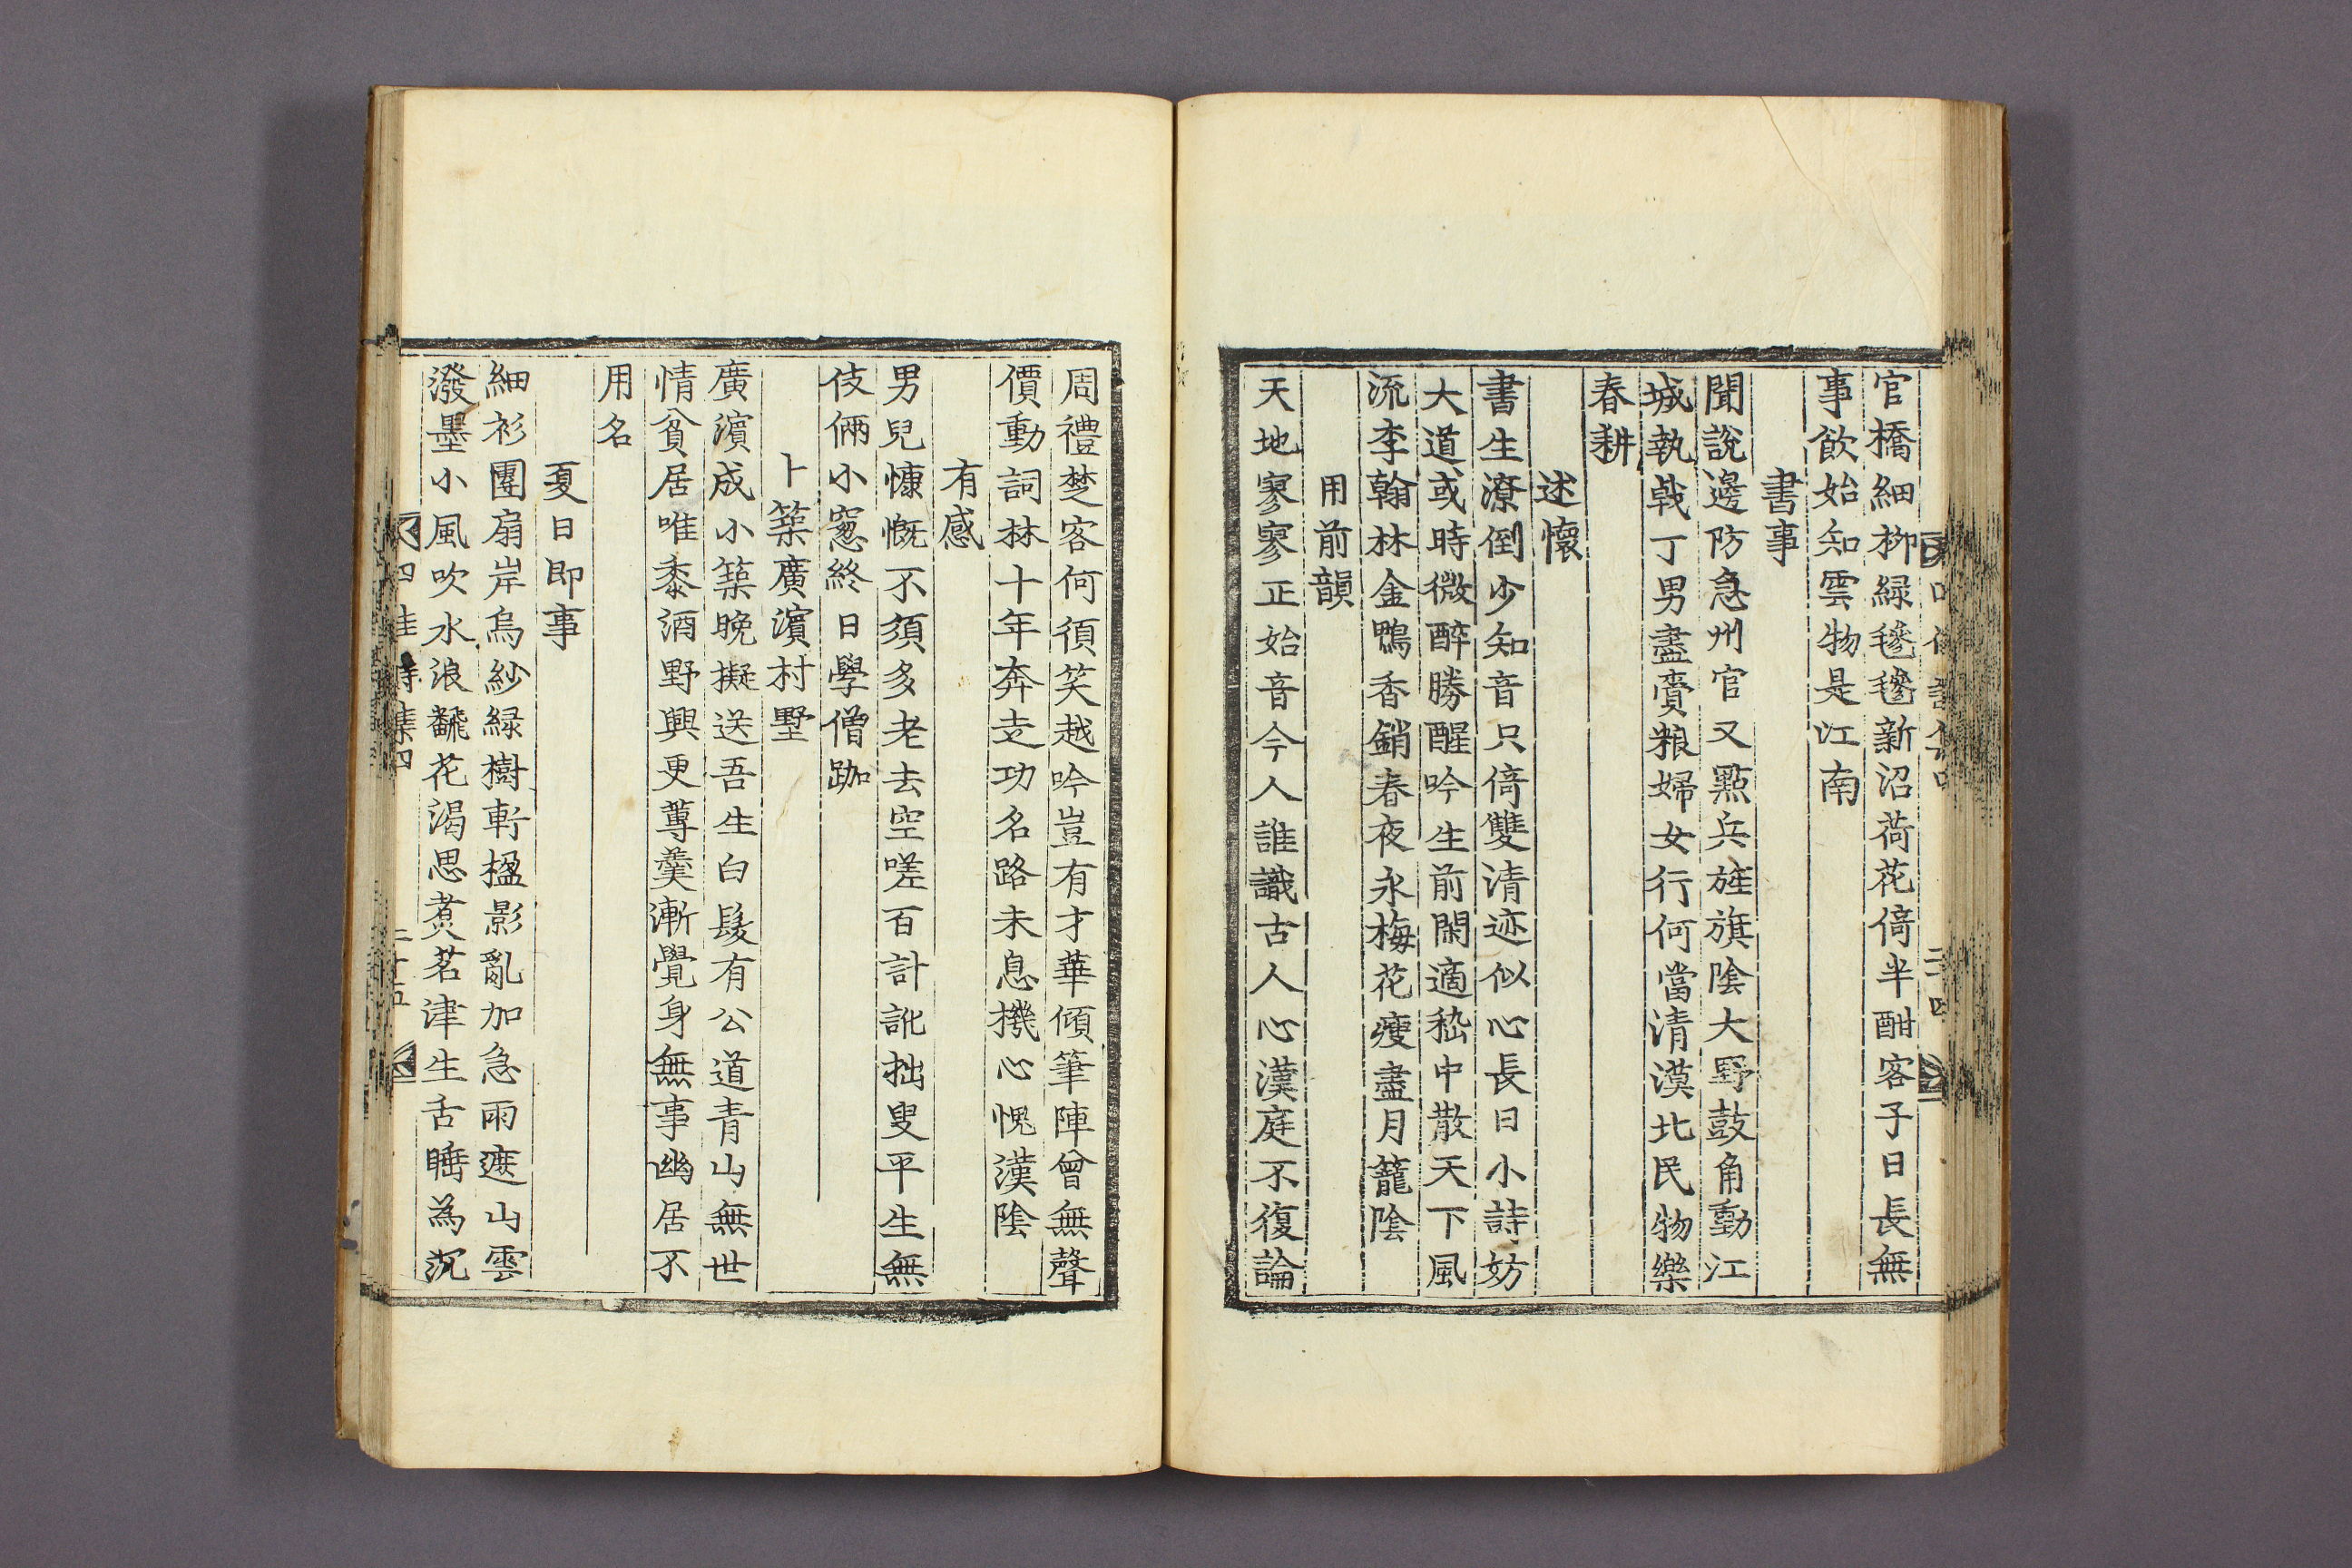 官橋細柳緑毿毿新沼荷花倚半酣客子日長無
事飲始知雲物是江南
書事
聞說邊防急州官又點兵旌旗陰大野鼓角動江
城執戟丁男盡賫粮婦女行何當清漠北民物樂
春耕
述懷
書生潦倒少知音只倚雙清迹似心長日小詩妨
大道或時微醉勝醒吟生前閑適嵇中散天下風
流李翰林金鴨香銷春夜永梅花瘦盡月籠陰
用前韻
天地寥寥正始音今人誰識古人心漢庭不復論
周禮楚客何須笑越吟豈有才華傾筆陣曾無聲
價動詞林十年奔走功名路未息機心愧漢陰
有感
男兒慷慨不須多老去空嗟百計訛拙叟平生無
伎倆小窓終日學僧跏
卜築廣濱村墅
廣濱成小築晚擬送吾生白髮有公道青山無世
情貧居唯黍酒野興更蓴羹漸覺身無事幽居不
用名
夏日即事
細衫團扇岸烏紗緑樹軒楹影亂加急雨遮山雲
潑墨小風吹水浪飜花渴思煑茗津生舌睡為沉
四佳詩集四
二十五